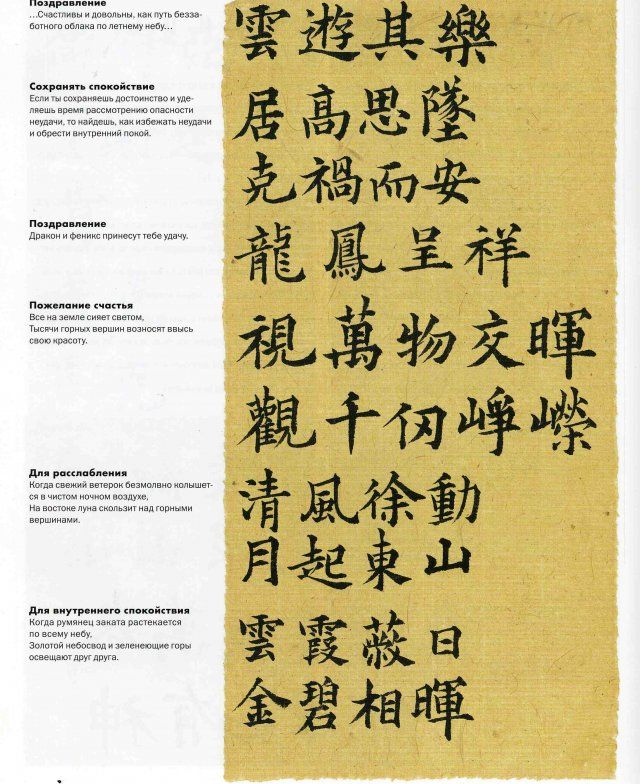 Поздравление
...Счастливы и довольны, как путь безза-
ботного облака по летнему небу...
Сохранять спокойствие
Если ты сохраняешь достоинство и уде-
ляешь время рассмотрению опасности
неудачи, то найдешь, как избежать неудачи
и обрести внутренний покой.
Поздравление
Дракон и феникс принесут тебе удачу.
Пожелание счастья
Все на земле сияет светом,
Тысячи горных вершин возносят ввысь
свою красоту.
Для расслабления
Когда свежий ветерок безмолвно колышет-
ся в чистом ночном воздухе,
На востоке луна скользит над горными
вершинами.
Для внутреннего спокойствия
Когда румянец заката растекается
по всему небу,
Золотой небосвод и зеленеющие горы
освещают друг друга.
雲遊其樂
居高思墜
克禍而安
龍鳳呈祥
視萬物交暉
觀千仞崢嶸
清風徐動
月起東山
雲霞蔽日
金碧相暉